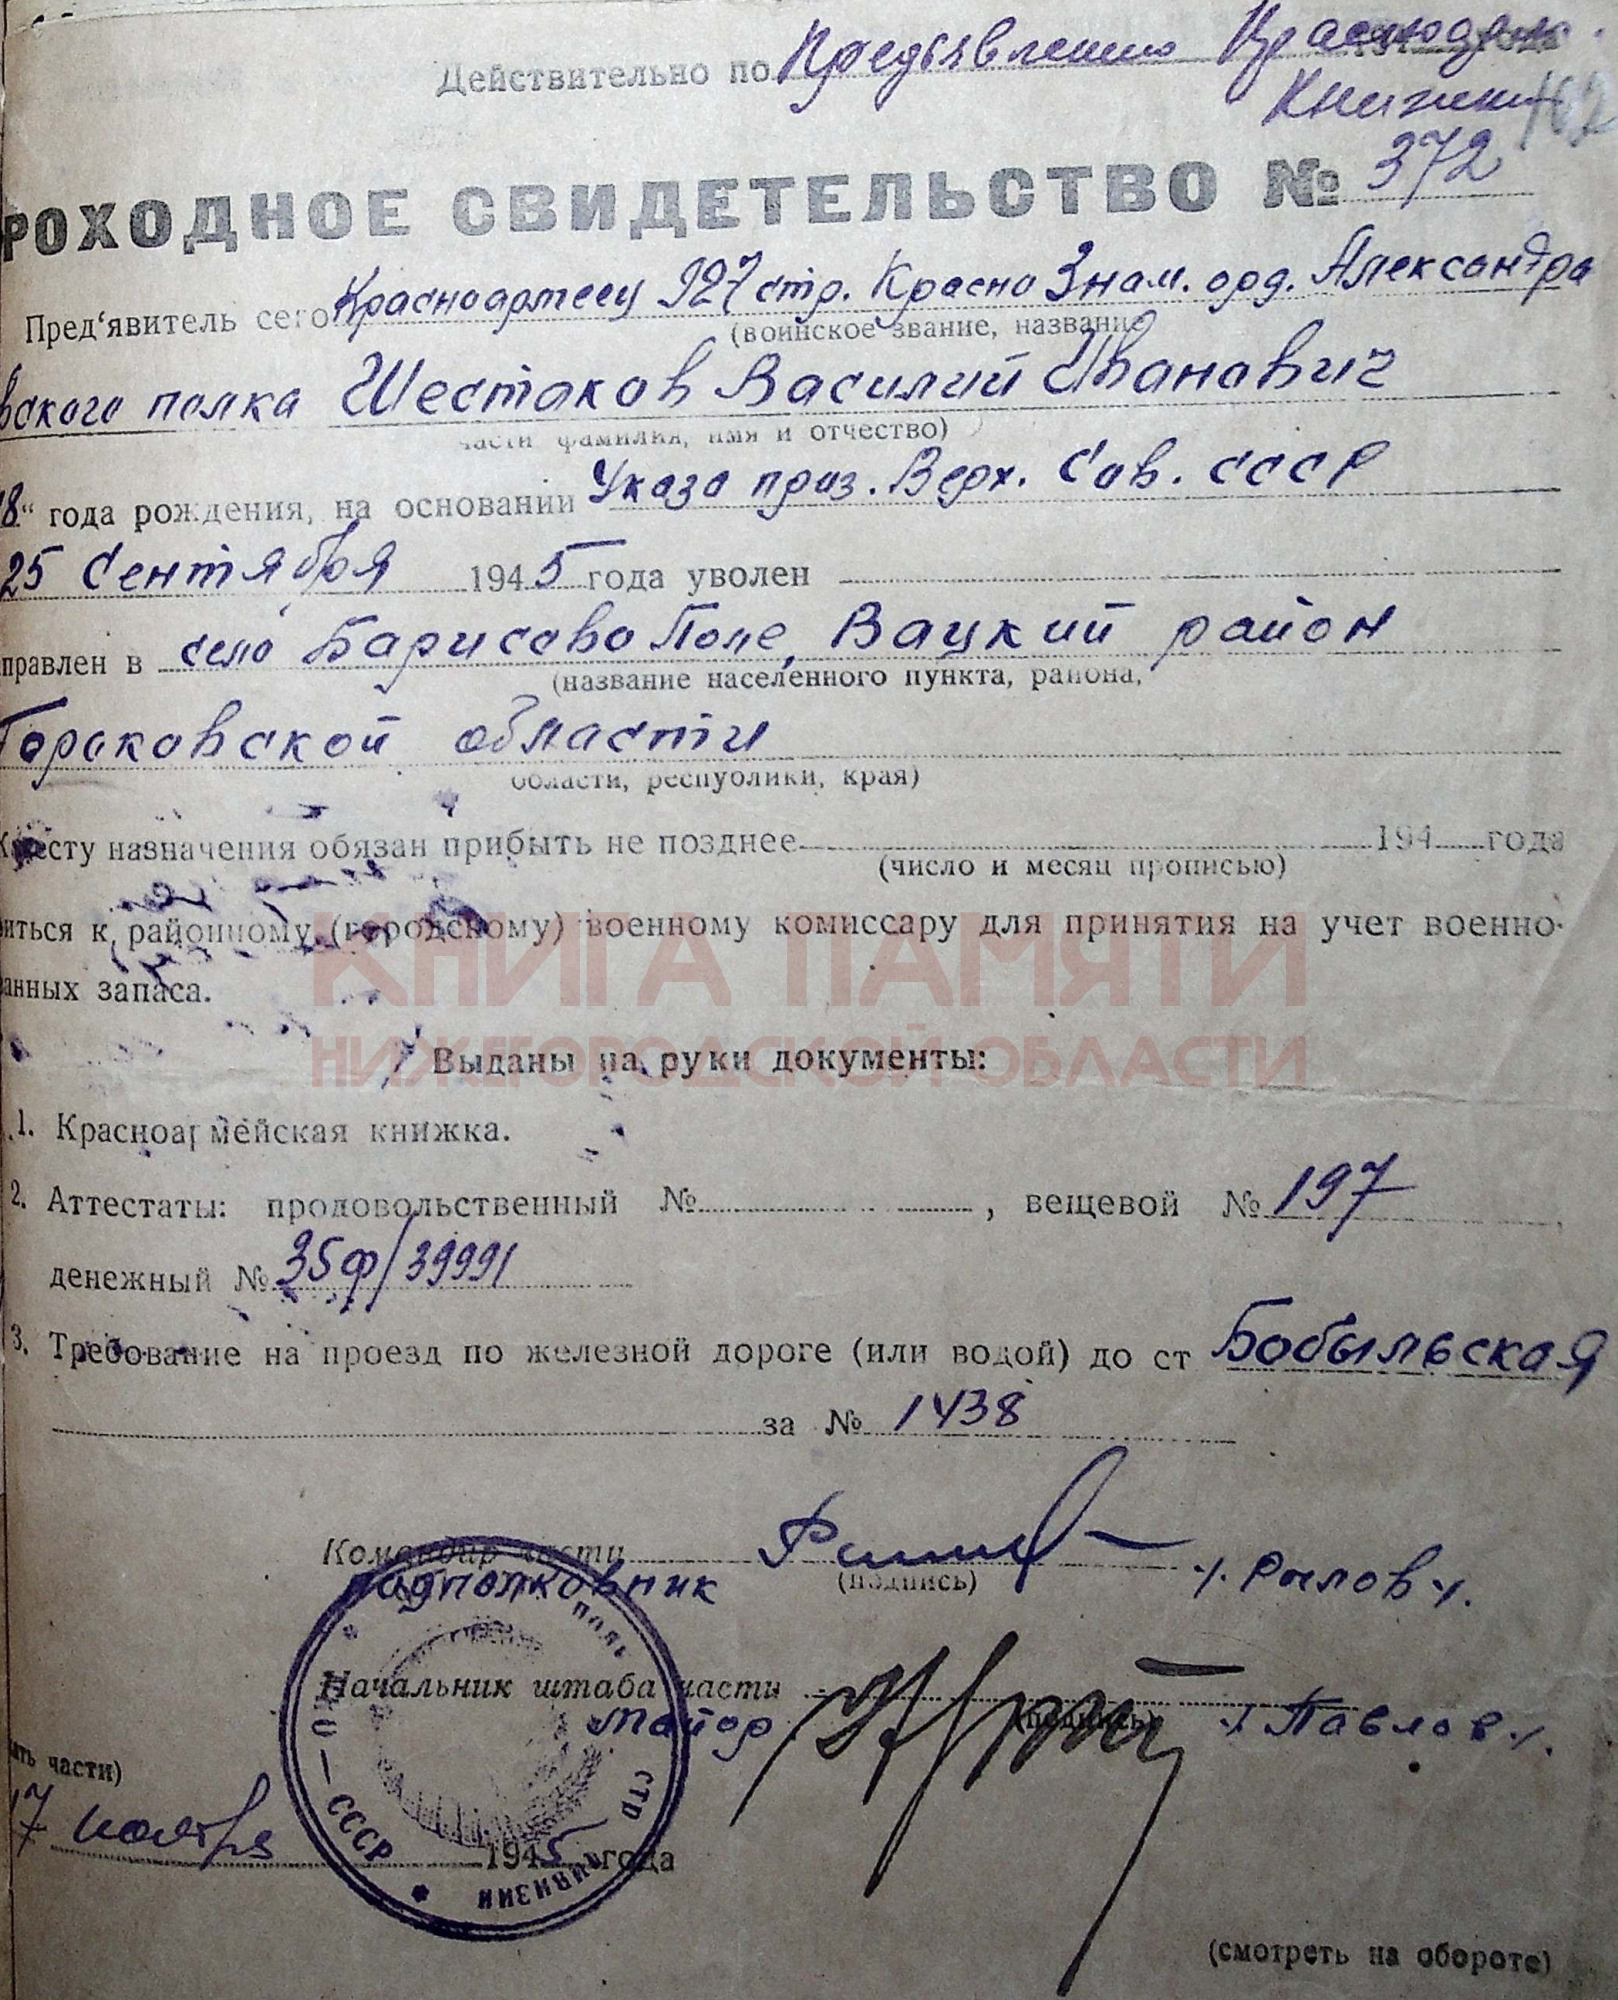 Действительно по предъявлению Красноарм.
Книжки 162
РОХОДНОЕ СВИДЕТЕЛЬСТВО № 372
Пред'явитель сего Красноармеец 927 стр. Красно Знам. орд. Александра
(воинское звание, название
вского полка Шестаков Василий Иванович
части фамилия, имя и отчество)
18" года рождения, на основании Указа през. Верх. Сов. СССР
25 Сентября 1945 года уволен
правлен в село Барисово Поле, Вацкий район
(название населенного пункта, района,
Горьковской области
области, республики, края)
К месту назначения обязан прибыть не позднее 194 года
(число и месяц прописью)
иться к районному (городскому) военному комиссару для принятия на учет военно-
анных запаса.
КНИГА ПАМЯТИ
НИЖЕГОРОДСКОЙ ОБЛАСТИ
Выданы на руки документы:
1. Красноармейская книжка.
2. Аттестаты: продовольственный № , вещевой № 197
денежный № 35ф/39991
3. Требование на проезд по железной дороге (или водой) до ст Бобыльская
за № 1438
Командир части
подполковник (подпись) /. Рылов /.
Начальник штаба части
Майор (подпись) /. Павлов /.
ать части)
17 ноября 1945 года
СССР СТР ДИВИЗИИ
(смотреть на обороте)